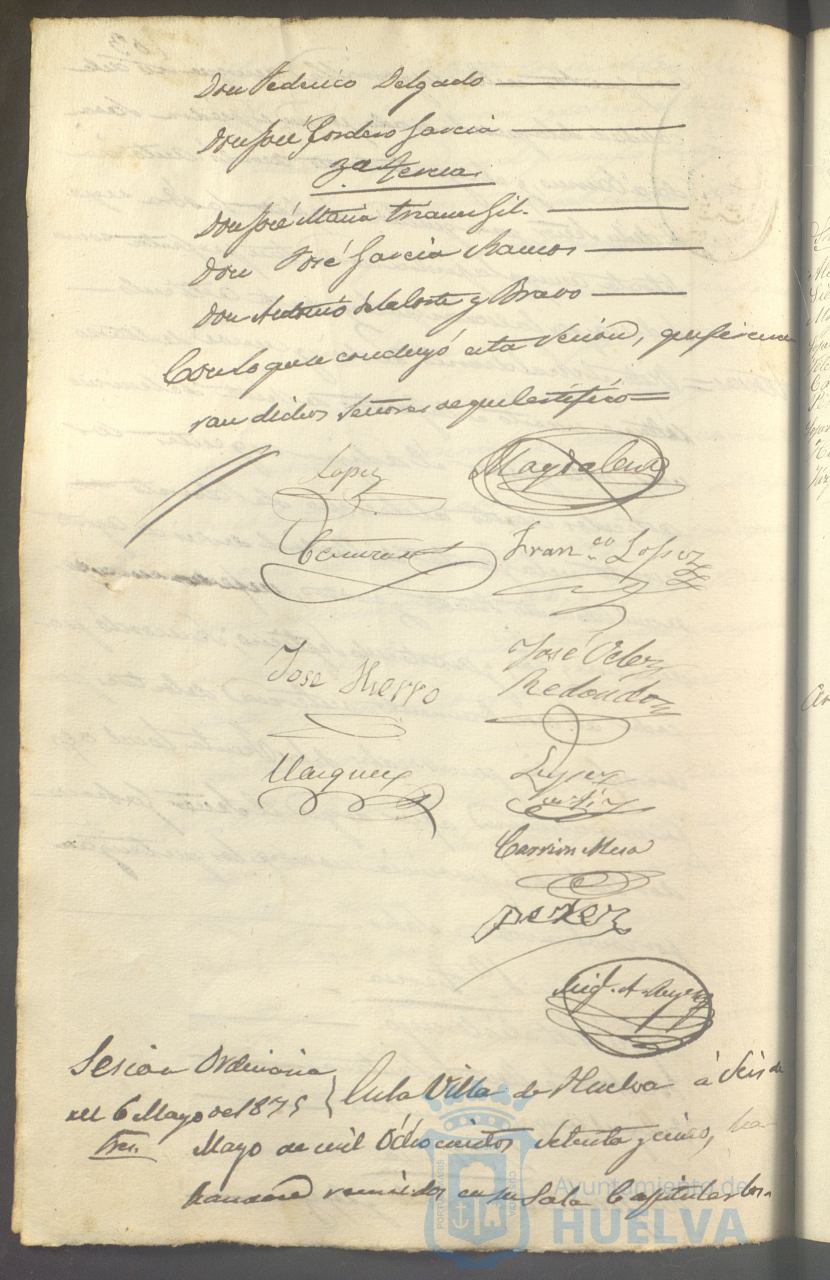 Don Federico Delgado
Don José Cordero Garcia
3ª Terna
Don José Maria Trianes Gil.
Don José Garcia Ramos
Don Antonio de la Corte y Bravo
Con lo que se concluyó esta Sesion, que firma
ran dichos Señores de que Certifico
Lopez
Magdalena
Franco Lopez
Jose Hierro
Jose Velez
Redondo
Marquez
Lopez
Ortiz
Carrion Mesa
Perez
Mig. A.
Sesion Ordinaria
del 6 Mayo de 1875
En la Villa de Huelva á Seis de
Mayo de mil Ochocientos Setenta y cinco, ha
reunidos en su Sala Capitular los
PORTUS MARIS
CUSTODIA
Ayuntamiento de
HUELVA